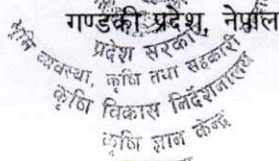 गण्डकी प्रदेश, नेपाल
प्रदेश सरकार
भूमि व्यवस्था, कृषि तथा सहकारी
कृषि विकास निर्देशनालय
कृषि ज्ञान केन्द्र